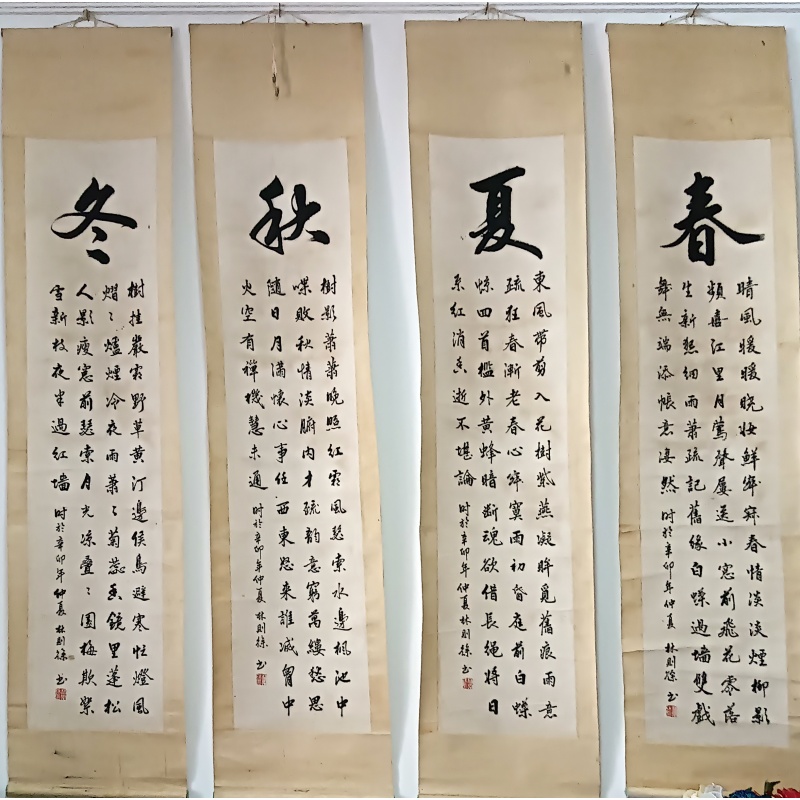 春
晴風暖暖晓妆鮮寂寂春情淡淡煙柳影
頻喜江里月鶯聲屢送小窓前飛花零落
生新愁細雨蕭疏記舊缘白蝶過墙雙戲
舞無端添悵意凄然 时於辛卯年仲夏 林则徐书
夏
東風带剪入花樹紫燕凝眸覓舊痕雨意
疏狂春漸老春心寂寞雨初昏庭前白蝶
惊回首槛外黄蜂暗断魂欲借長绳將日
系红消香逝不堪論 时於辛卯年仲夏林则徐书
秋
樹影蕭蕭晚照红霜風瑟索水邊楓池中
喋敗秋情淡腑内才疏韵意窮萬缕愁思
随日月满懷心事任西東怒来誰滅胷中
火空有禅機慧未通 时於辛卯年仲夏 林则徐书
冬
樹挂嚴霜野草黄汀邊侯鳥避寒忙燈風
熠〻爐煙冷夜雨蕭〻菊蕊香鏡里蓬松
人影瘦窓前瑟索月光凉疊〻園梅欺紫
雪新枝夜半過红墙 时於辛卯年仲夏林则徐书